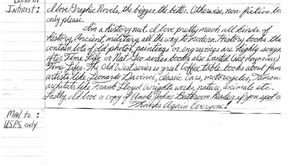 Interest:
I love Graphic Novels, the bigger, the better. Otherwise, non-fiction books
only please.
I'm a history nut. I love pretty much all kinds of
history, Ancient, military all the way to modern. History books that
contain lots of old photos, paintings or engravings are highly sought
after. Time Life or Nat Geo series books also
Time Life The Old West series is great. Coffee table books about famous
artists like Leonardo Davinci, classic cars, motorcycles,
architects like Frank Lloyd Wright works, nature, animals etc.
Lastly, I'd love a copy of Uncle John's Bathroom Reader if you spot one
Thanks Again Everyone!
Mail to:
USPS only